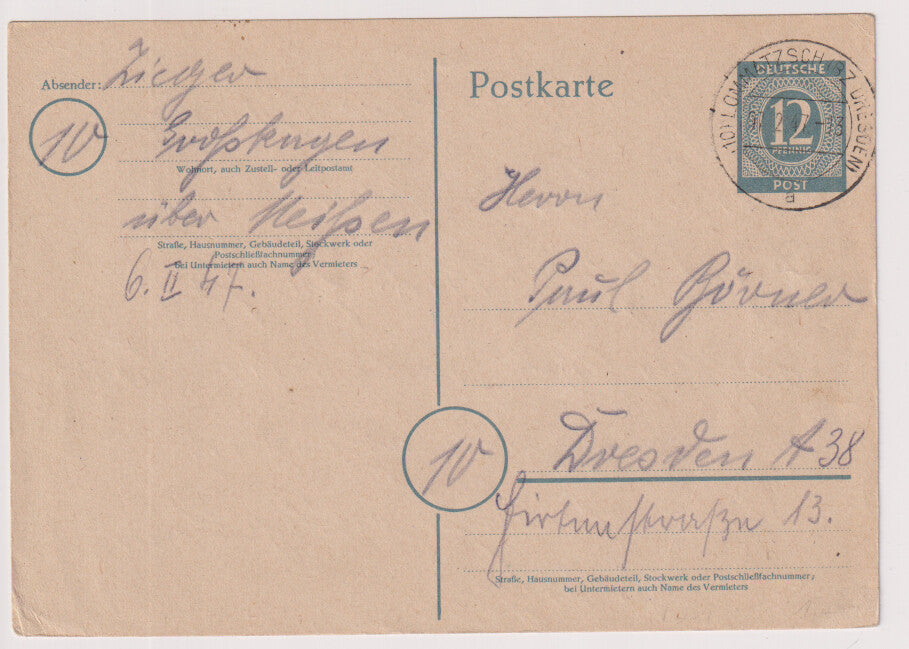 Absender: Zieger
10
Großkagen
Wohnort, auch Zustell- oder Leitpostamt
über Meißen
Straße, Hausnummer, Gebäudeteil, Stockwerk oder
Postschließfachnummer;
bei Untermietern auch Name des Vermieters
6. II 47.
Postkarte
DEUTSCHE
12
PFENNIG
POST
(10) LOMMATZSCH (BZ DRESDEN)
a
Herrn
Paul Görner
10
Dresden A 38
Hirtenstraße 13.
Straße, Hausnummer, Gebäudeteil, Stockwerk oder Postschließfachnummer;
bei Untermietern auch Name des Vermieters